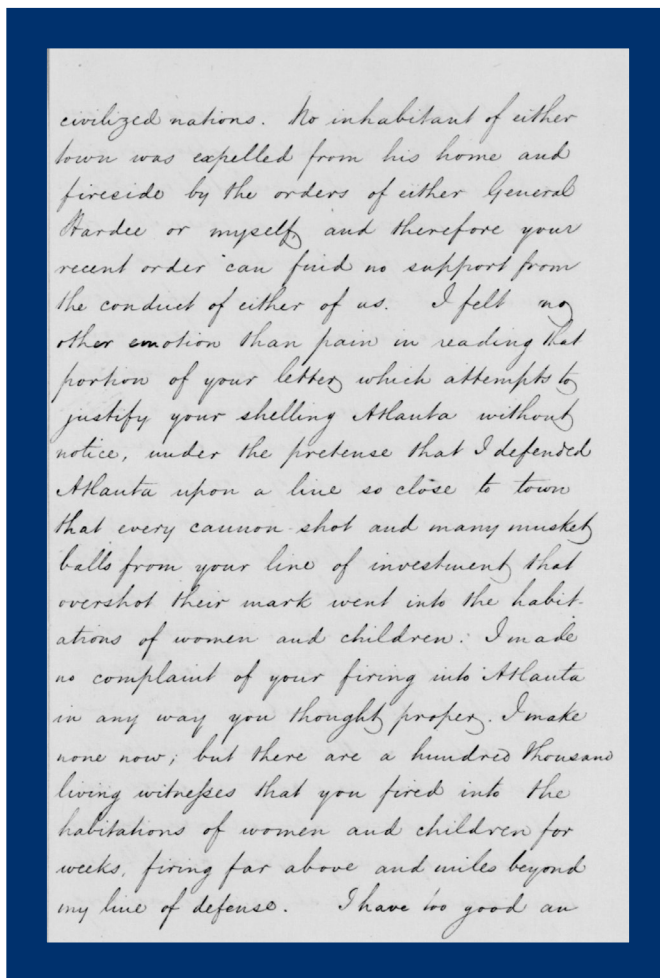 civilized nations. No inhabitant of either
town was expelled from his home and
fireside by the orders of either General
Hardee or myself, and therefore your
recent order can find no support from
the conduct of either of us. I felt no
other emotion than pain in reading that
portion of your letter which attempts to
justify your shelling Atlanta without
notice, under the pretense that I defended
Atlanta upon a line so close to town
that every cannon shot and many musket
balls from your line of investment that
overshot their mark went into the habit-
ations of women and children. I made
no complaint of your firing into Atlanta
in any way you thought proper. I make
none now; but there are a hundred thousand
living witnesses that you fired into the
habitations of women and children for
weeks, firing far above and miles beyond
my line of defense. I have too good an